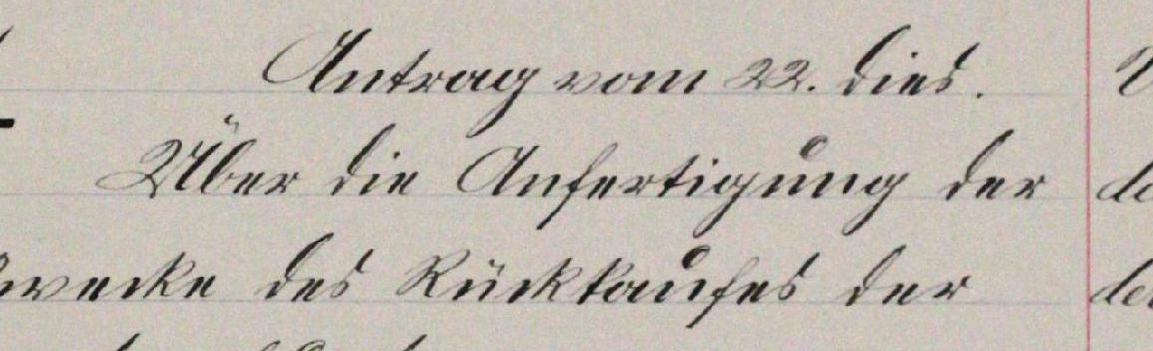 Antrag vom 22. dies.
Über die Anfertigung der
zwecke des Rückkaufes der